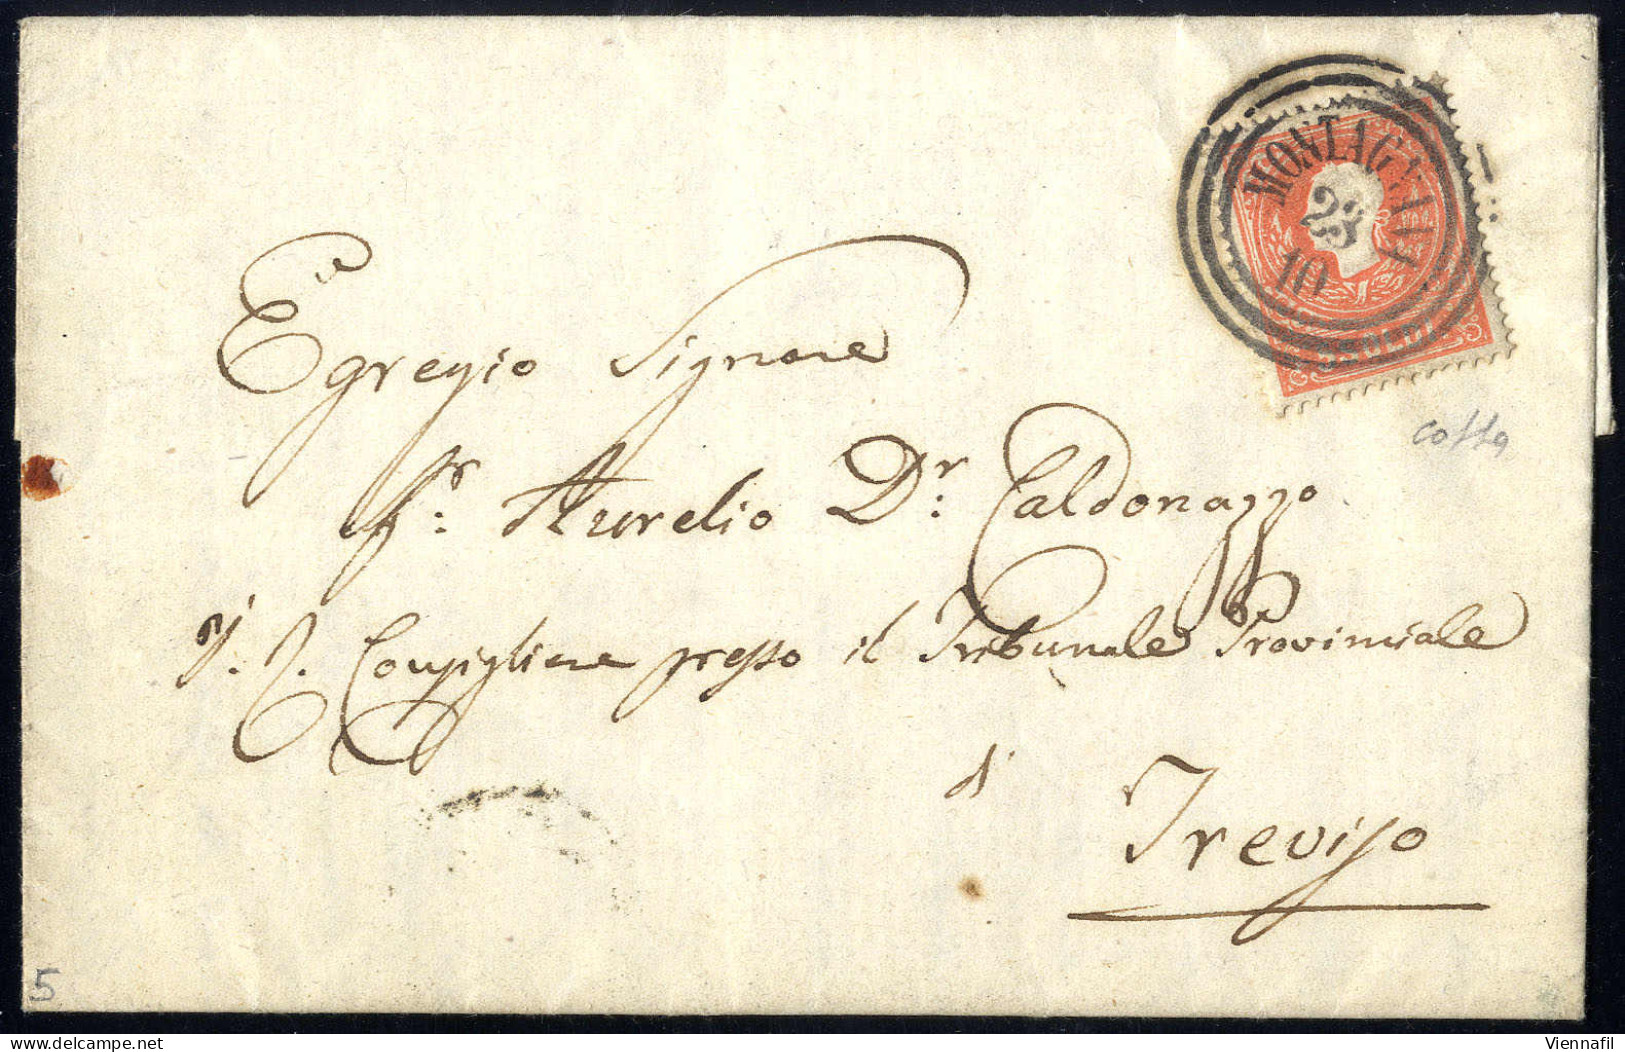 MONTAGNANA
23
10
5 SOLDI
Egregio Signore
Sr. Aurelio Dr. Caldonazzo
I. I. Consigliere presso il Tribunale Provinciale
di
Treviso
5
Viennafil